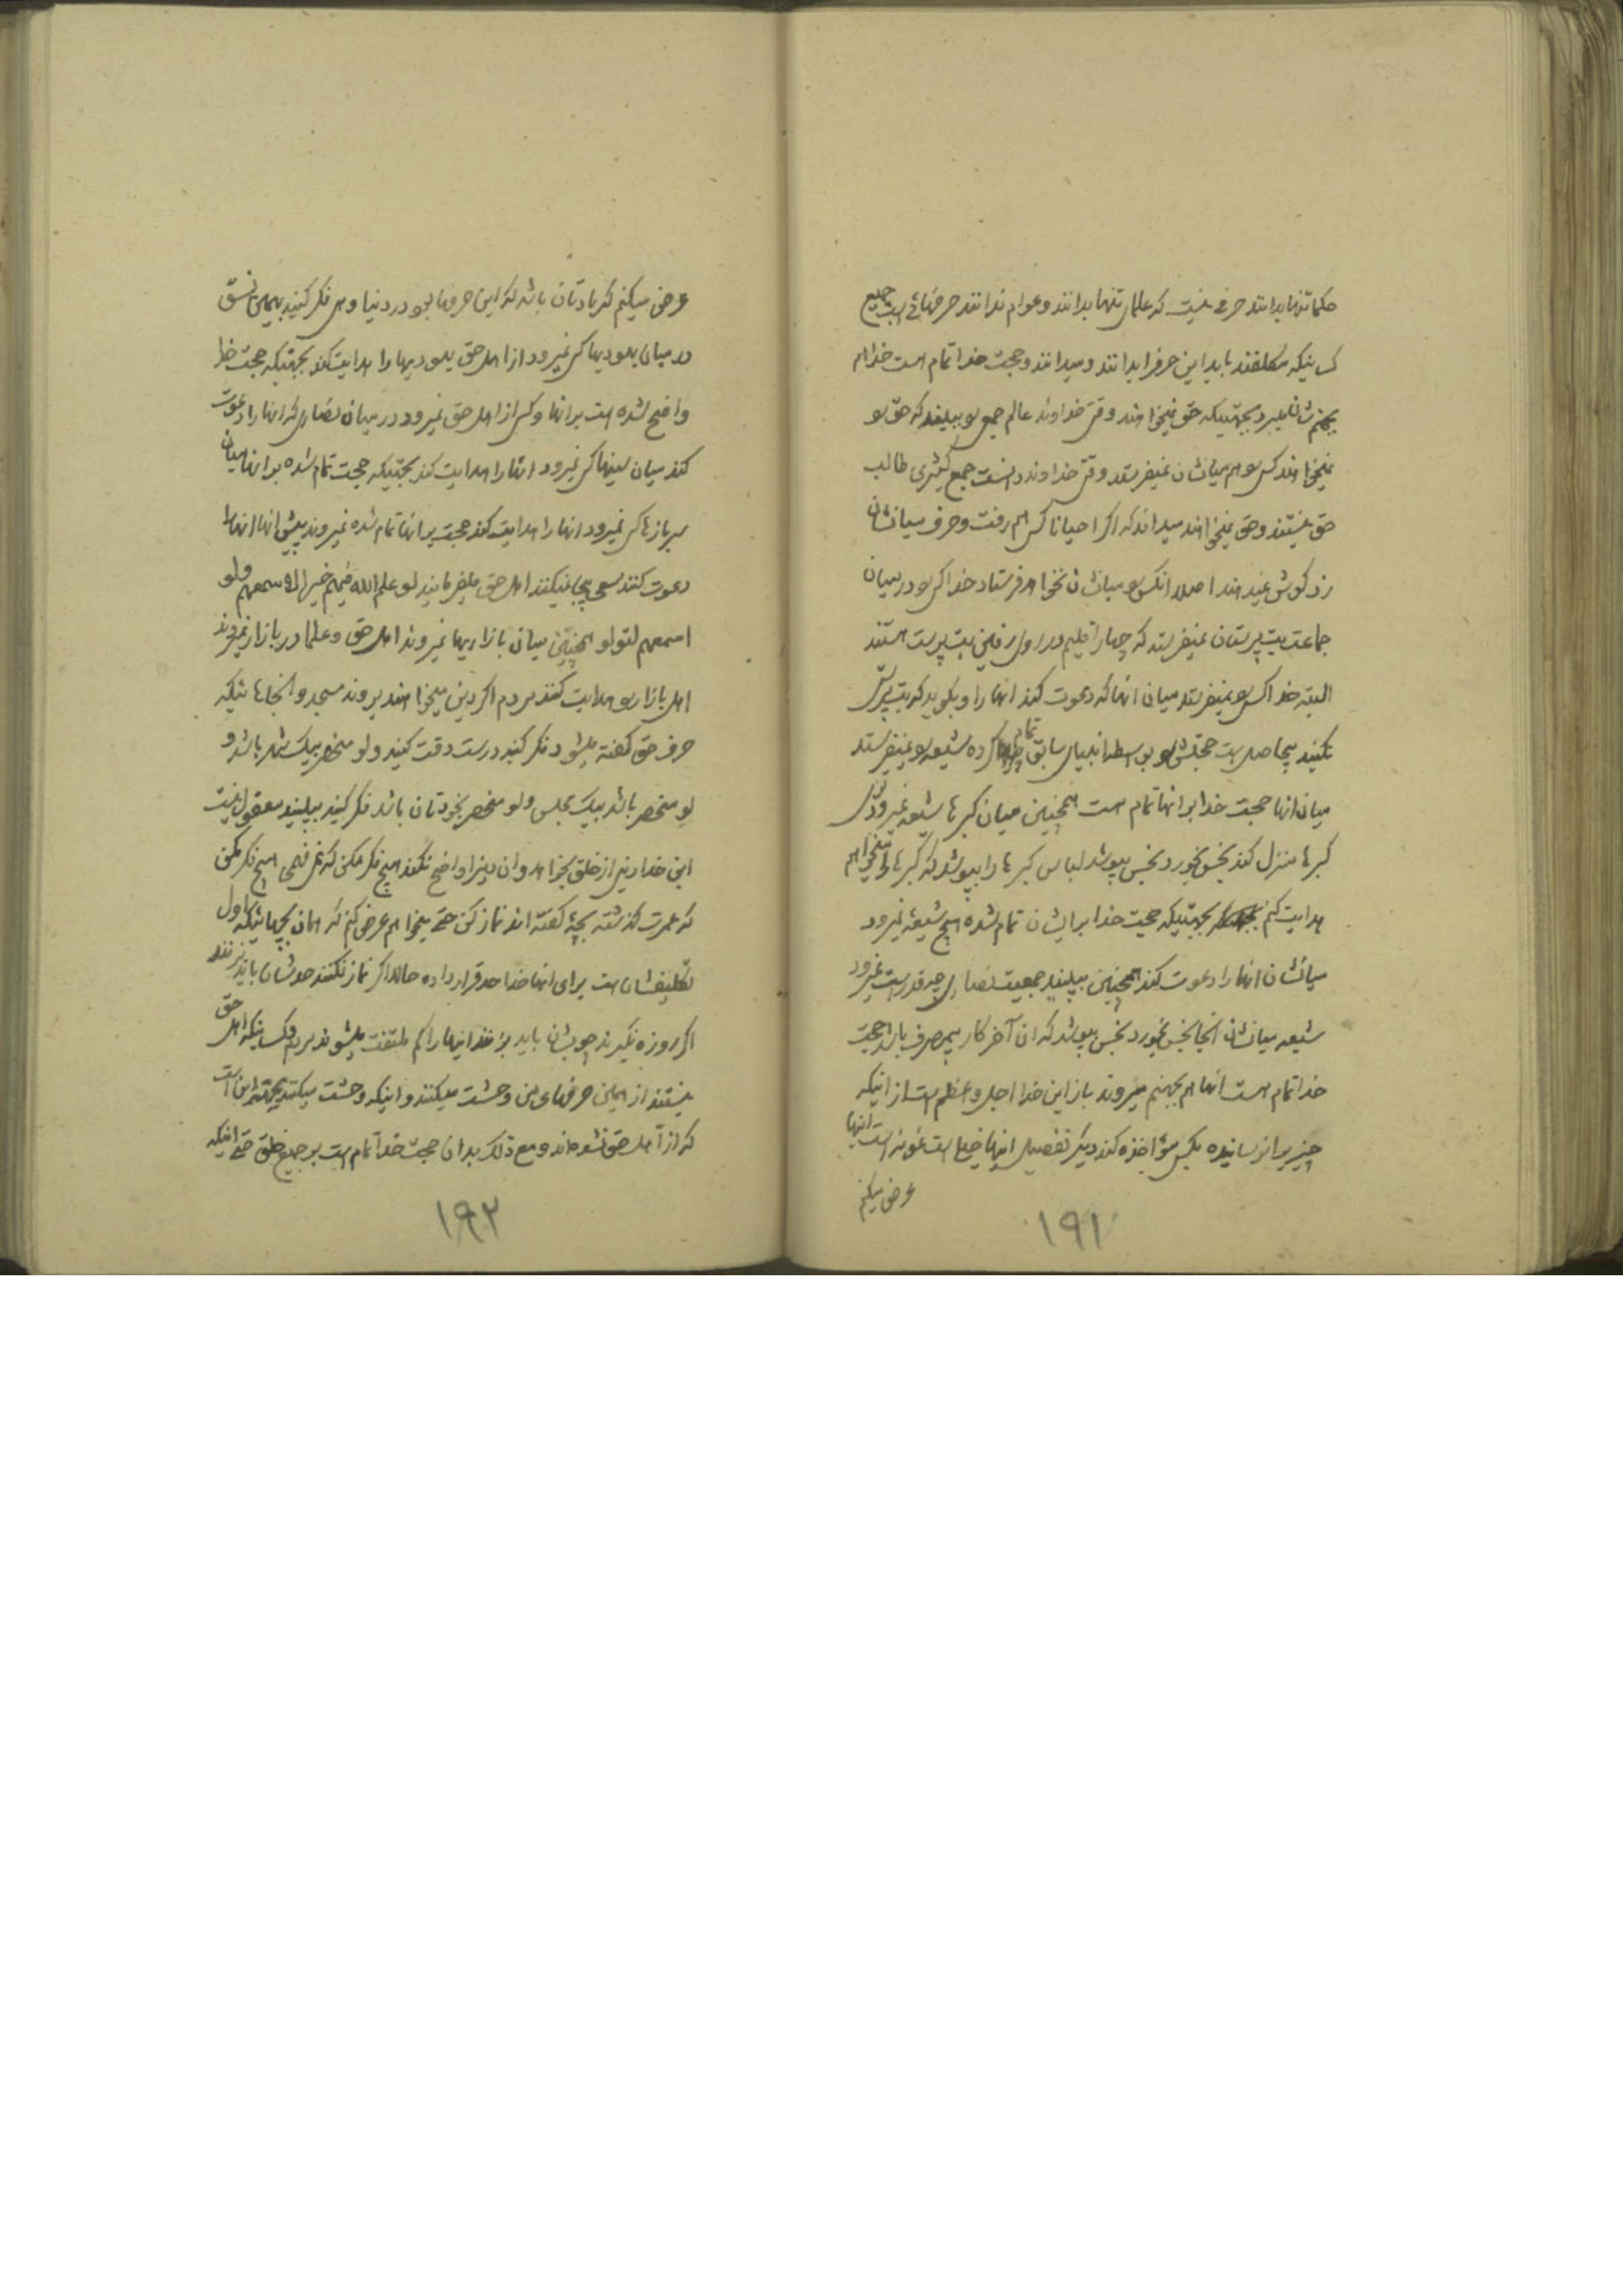 حکما تنها بدانند حرفی نیست که علمای تنها بدانند و عوام ندانند حرفهائی است جمیع
کسانیکه مکلفند باید این حرفرا بدانند و میدانند و حجت خدا تمام است خدا هم
بجهنم‌شان میبرد بجهتیکه حق نمیخواهند وقتی خداوند عالم جمعی را ببیند که حق را
نمیخواهند کسی را هم میانشان نمیفرستد وقتی خداوند دانست جمع کثیری طالب
حق نیستند و حق نمیخواهند میداند که اگر احیانا کسی هم رفت و حرف میانشان
زد گوش نمیدهند اصلا آنکس را میانشان نخواهد فرستاد خدا کسی را در میان
جماعت بت پرستان نمیفرستد که چهار اقلیم در روی زمین بت پرست هستند
البته خدا کسی را نمیفرستد میان آنها که دعوت کند آنها را و بگوید که بت پرستی
نکنید بیحاصل است حجتش را بواسطه انبیای سابق تمام کرده شیعه را نمیفرستد
میان آنها حجت خدا بر آنها تمام است همچنین میان گبرها شیعه نمیرود توی
گبرها منزل کند نجس بخورد نجس بپوشد لباس گبرها را بپوشد که گبرها را میخواهم
هدایت کنم بجهتیکه حجت خدا بر ایشان تمام شده هیچ شیعهٔ نمیرود
میانشان آنها را دعوت کند همچنین ببینید جمعیت نصاری چه قدر است نمیرود
شیعه میانشان آنجا نجس بخورد نجس بپوشد که آن آخر کار بیمصرف باشد حجت
خدا تمام است آنها هم بجهنم میروند باز این خدا اجل و اعظم است از اینکه
چیزیرا نرسانیده بکسی مؤاخذه کند دیگر تفصیل اینها خیلی است نمونه است اینها
عرض میکنم
۱۹۱
عرض میکنم که یادتان باشد که این حرفها بود در دنیا و هی فکر کنید بهمین نسق
در میان یهودیها کسی نمیرود از اهل حق یهودیها را هدایت کند بجهتیکه حجت خدا
واضح شده است بر آنها و کسی از اهل حق نمیرود در میان نصاری که آنها را دعوت
کند میان سنیها کسی نمیرود آنها را هدایت کند بجهتیکه حجت تمام شده بر آنها میان
سربازها کسی نمیرود آنها را هدایت کند حجت بر آنها تمام شده نمیروند پیش آنها آنها را
دعوت کنند سعی بیجا نمیکنند اهل حق میفرمایند لو علم الله فیهم خیرا لاسمعهم ولو
اسمعهم لتولوا همچنین میان بازاریها نمیروند اهل حق و علما در بازار نمیروند
اهل بازار را هدایت کنند مردم اگر دین میخواهند بروند مسجد و آنجاهائیکه
حرف حق گفته میشود فکر کنید درست دقت کنید ولو منحصر بیک شهر باشد و
لو منحصر باشد بیک مجلس ولو منحصر بخودتان باشد فکر کنید ببینید معقول نیست
این خدا دینی از خلق بخواهد و آن دین را واضح نکند هیچ فکر مکن که نمی فهمی هیچ فکر مکن
که عمرت گذشته بچهٔ گفته‌اند نماز کن حتی میخواهم عرض کنم که همان بچهائیکه اول
تکلیفشان است برای آنها خدا حد قرار داده حالا اگر نماز نکنند حدشان باید بزنند
اگر روزه نگیرند چوبشان باید بزنند اینها را کم ملتفت میشوند مردم کسانیکه اهل حق
نیستند از همین حرفهای من وحشت میکنند و اینکه وحشت میکنند بجهت این است
که از اهل حق نشده‌اند و مع ذلک بدان حجت خدا تمام است بر جمیع خلق حتی اینکه
۱۹۲